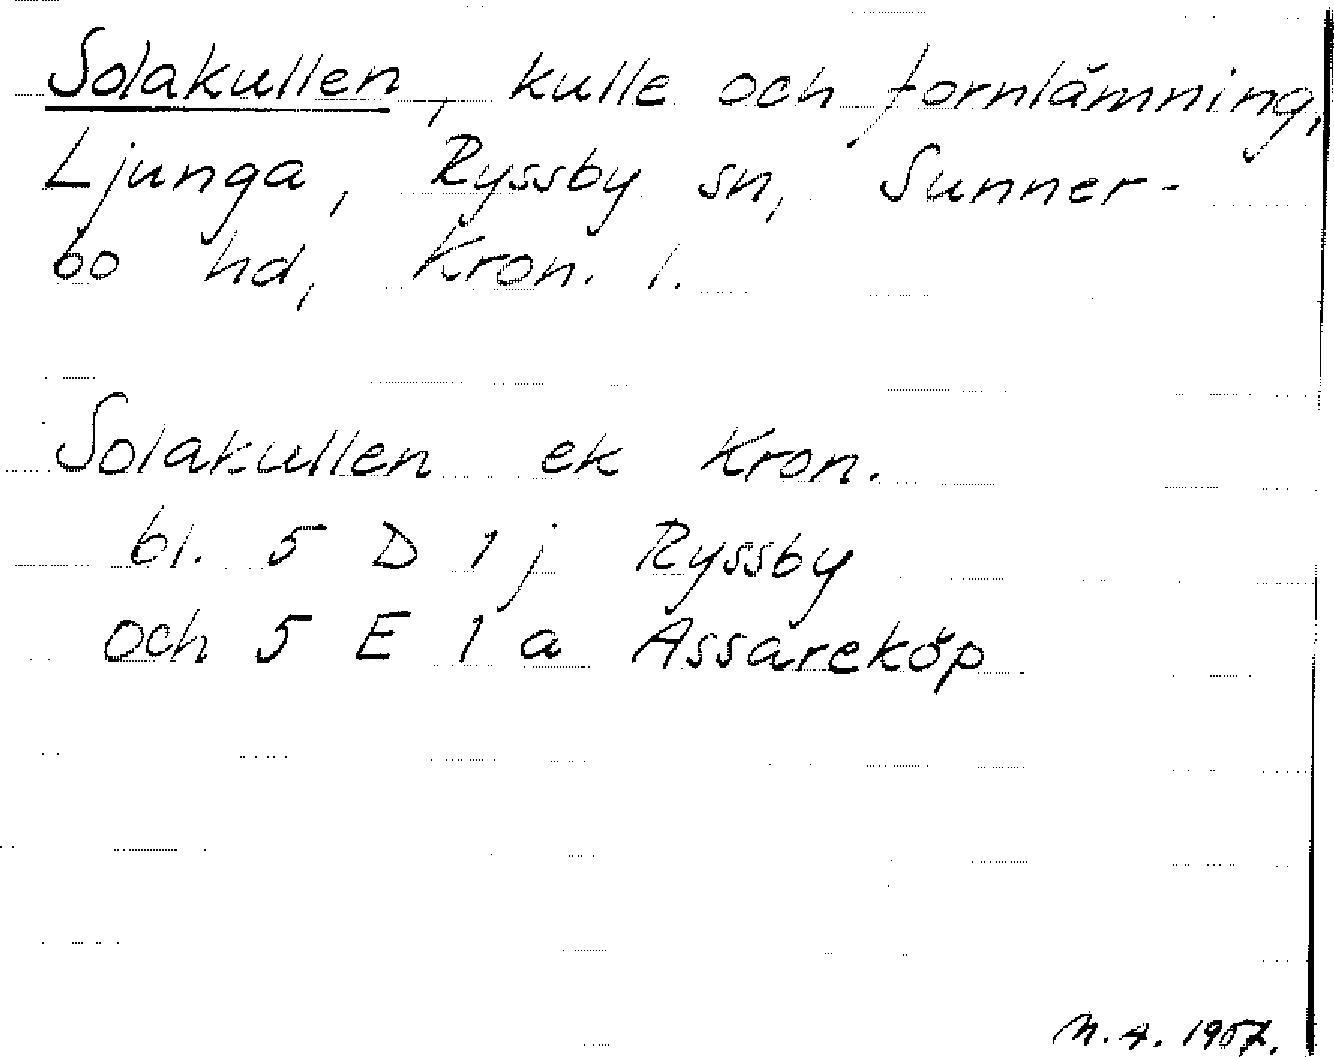 Solakullen, kulle och fornlämning,
Ljunga, Ryssby sn, Sunner-
bo hd, Kron. l.
Solakullen ek Kron.
bl. 5 D 1 j Ryssby
och 5 E 1 a Assareköp
N. A. 1957.